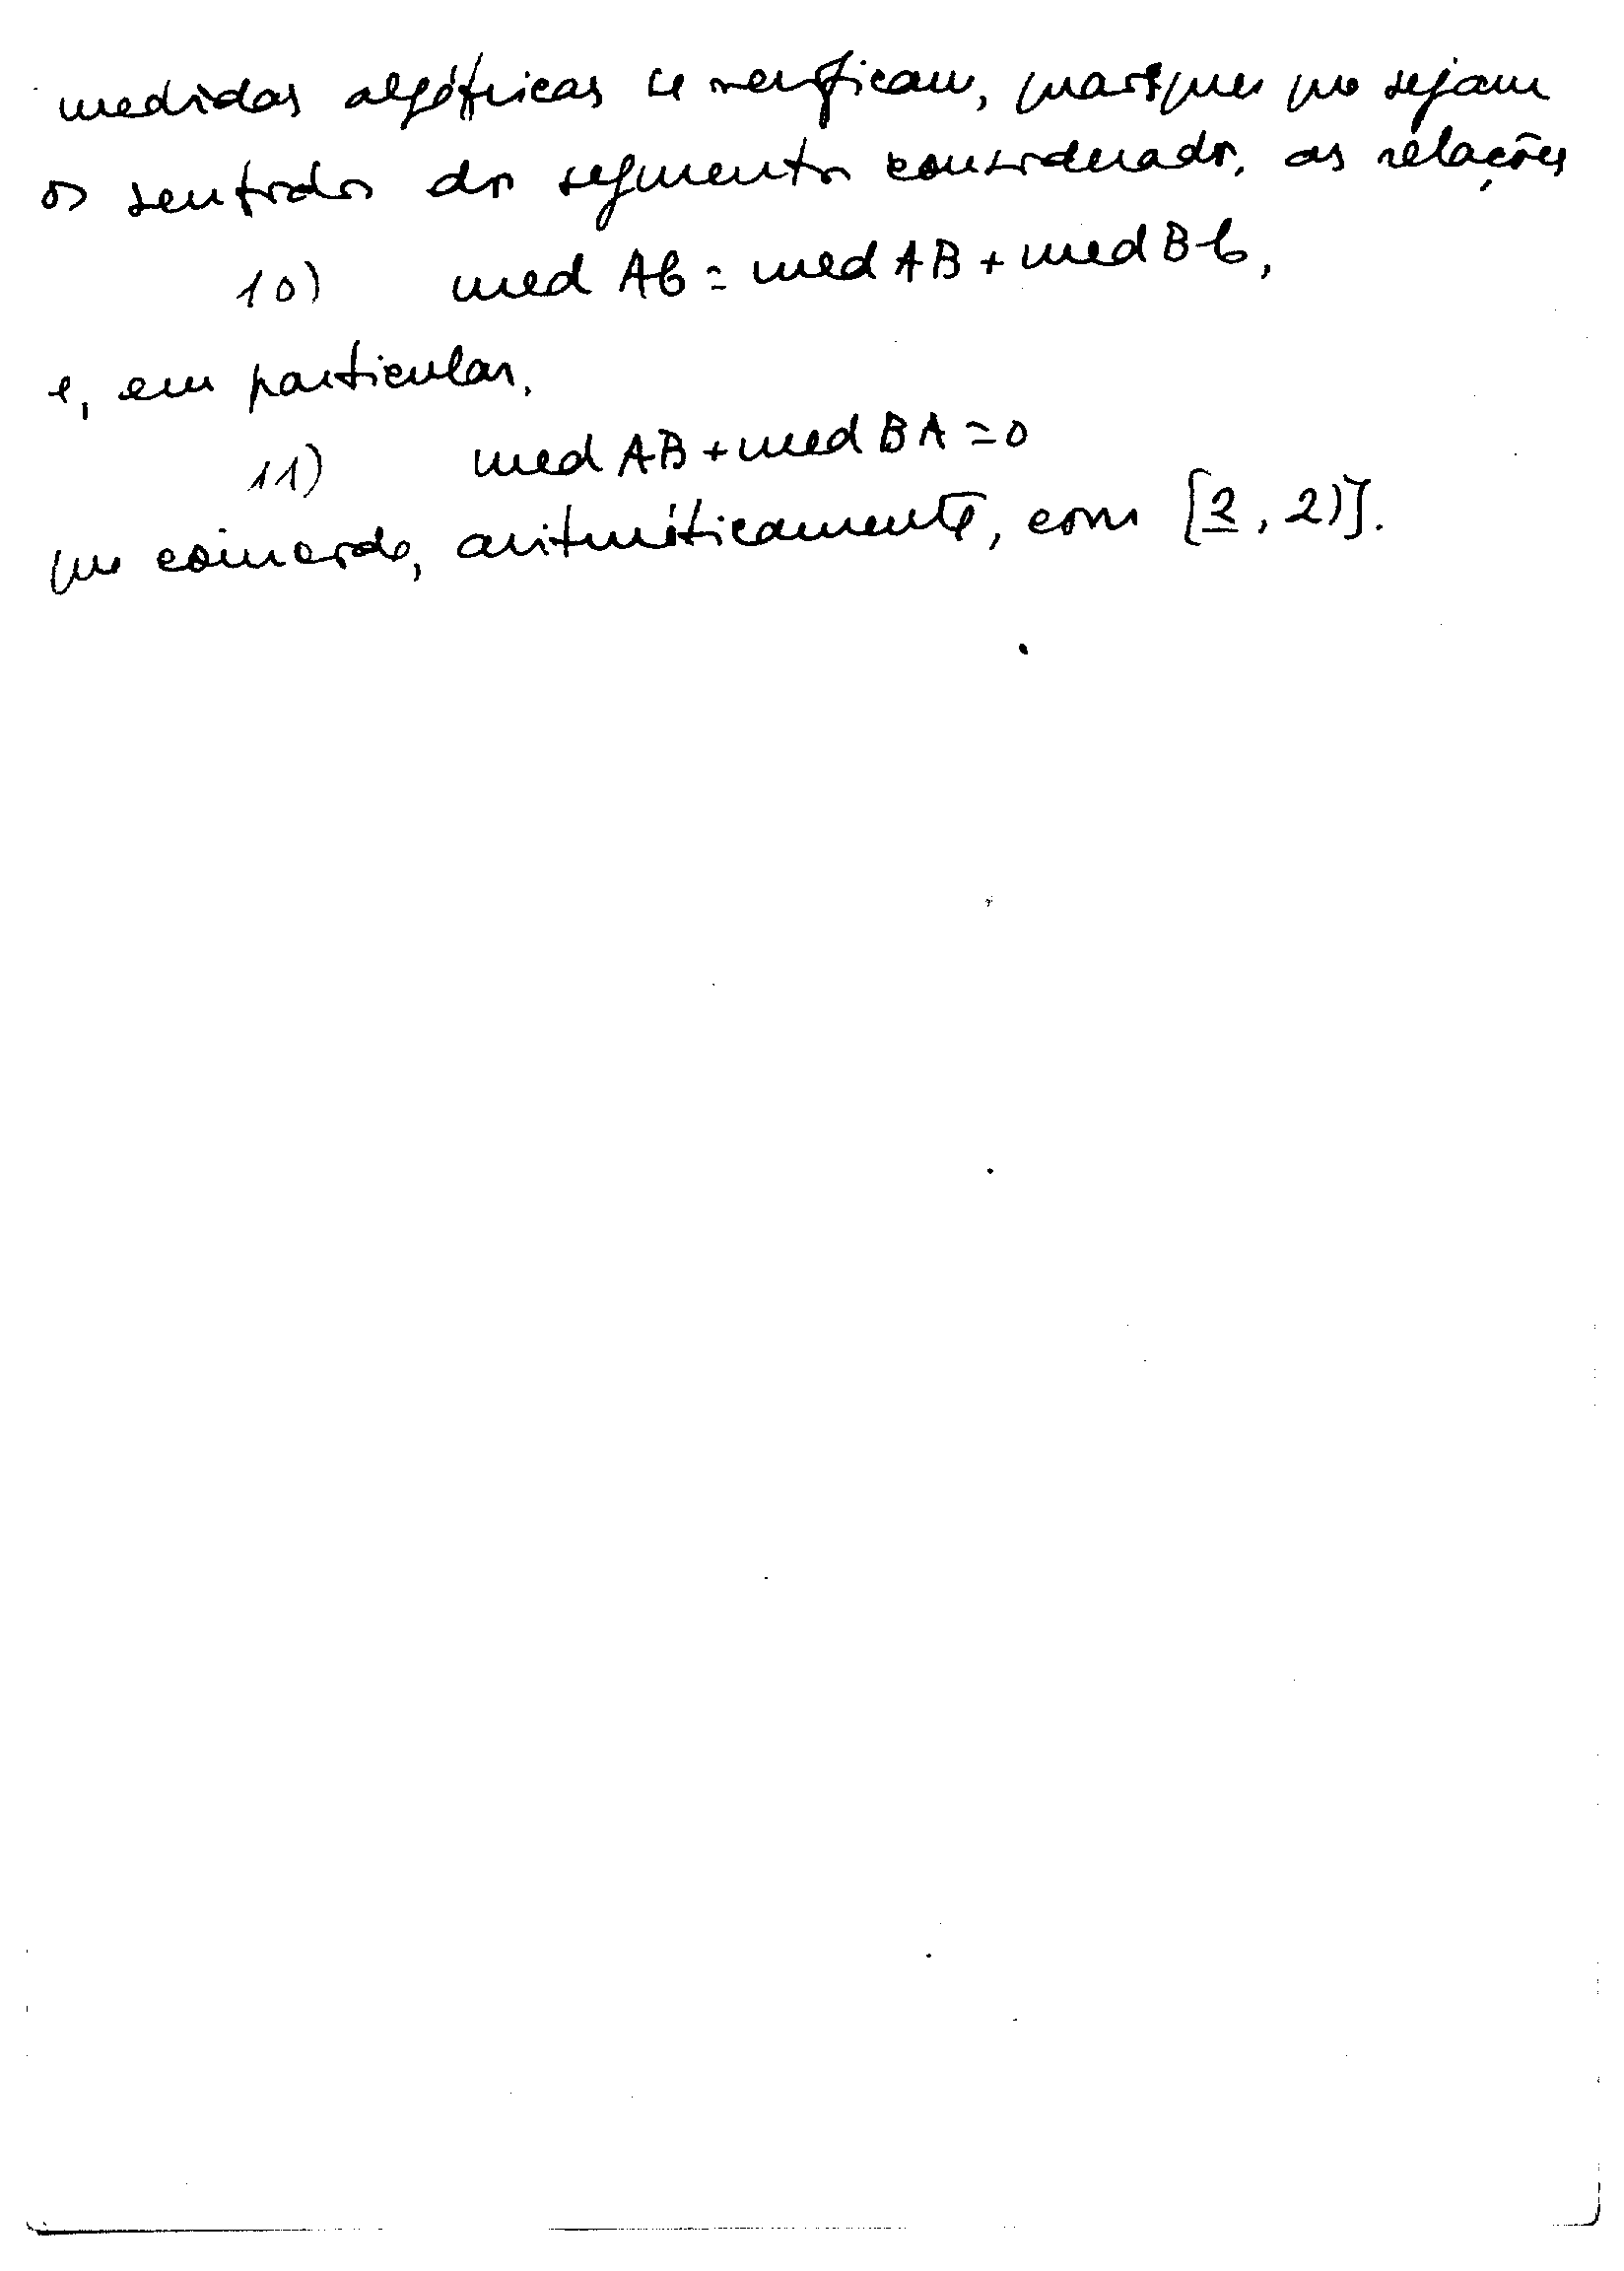 medidas algébricas se verificam, quaisquer que sejam
os sentidos dos segmentos considerados, as relações
10) med AC = med AB + med BC,
e, em particular,
11) med AB + med BA = 0
que coincide, aritméticamente, com [2, 2)].